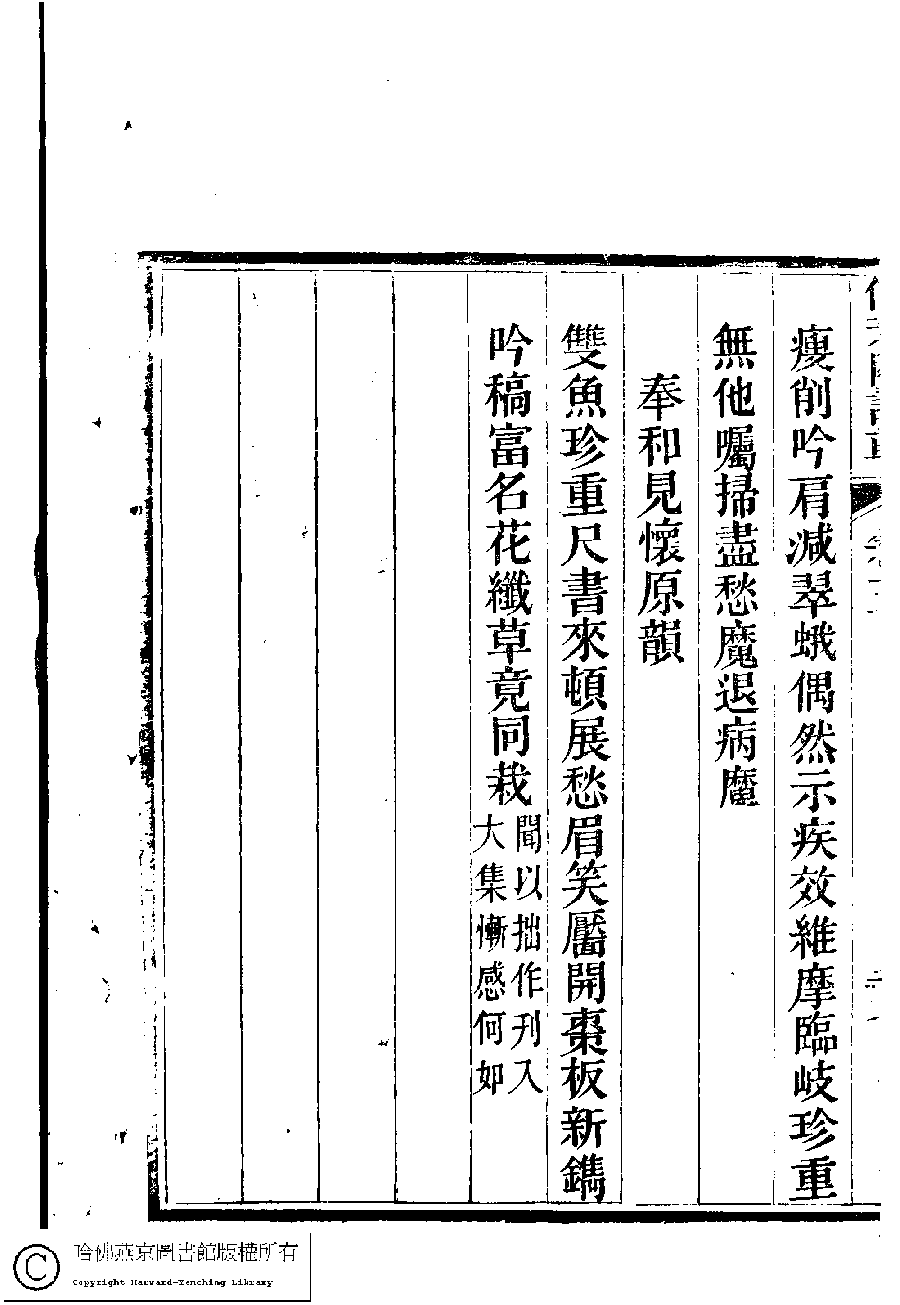 瘦削吟肩減翠蛾偶然示疾效維摩臨岐珍重
無他囑掃盡愁魔退病魔
奉和見懷原韻
雙魚珍重尺書來頓展愁眉笑靨開棗板新鐫
吟稿富名花纖草竟同栽聞以拙作刊入
大集慚感何如
哈佛燕京圖書館版權所有
Copyright Harvard-Yenching Library